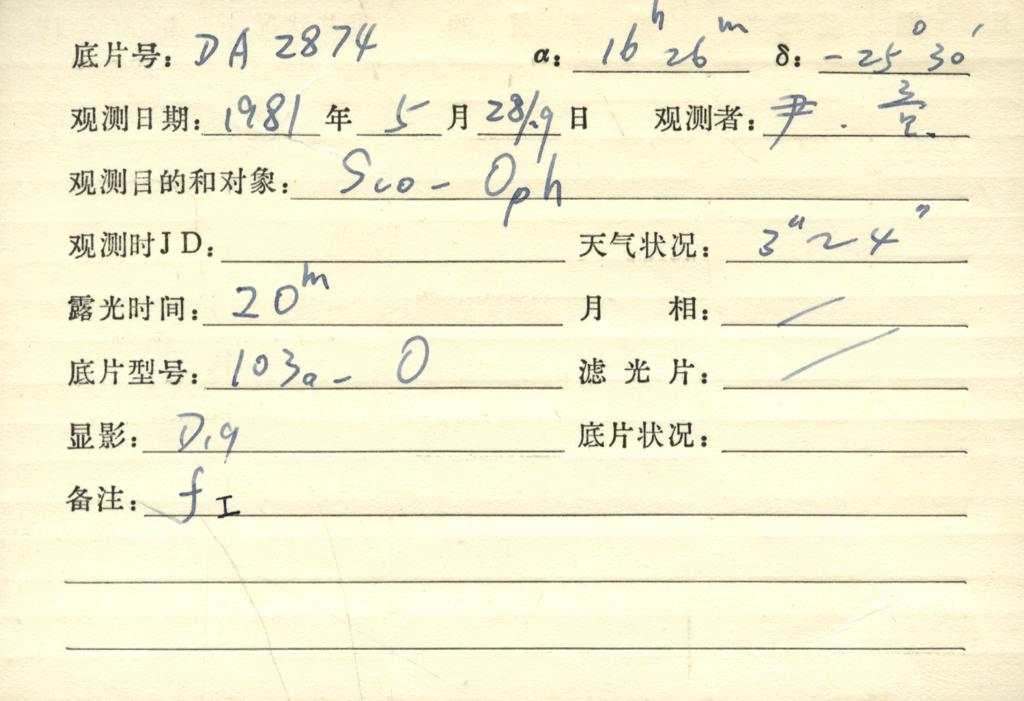 底片号: DA 2874 α: 16ʰ 26ᵐ δ: -25° 30′
观测日期: 1981 年 5 月 28/29 日 观测者: 尹.
观测目的和对象: Sco - Oph
观测时JD: 天气状况: 3″~4″
露光时间: 20ᵐ 月 相: /
底片型号: 103a - O 滤光片: /
显影: D19 底片状况:
备注: f I